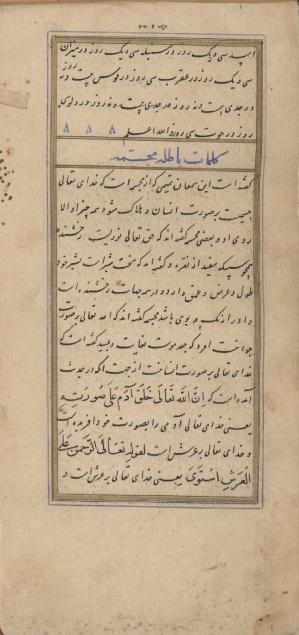 اسد سی و یک روز در سنبله سی و یک روز در میزان
سی و یک روز در عقرب سی روز در قوس بیست و نه روز
در جدی بیست و نه روز در دلو سی
روز در حوت سی روز والله اعلم
کلمات باطله مجسمه
گفته است این سمعان تمیمی که از مجسمه است که خدای تعالی
جسمیست بر صورت انسان و هلاک شود همه چیز او الا
روی او و بعضی مجسمه گفته اند که حق تعالی نوریست رخشنده
همچو سبیکه سفید از نقره و گفته اند که هفت شبر است بشبر خود
طول و عرض و عمق دارد و در همه جهات رخشنده است
و او را رنگ و بوی باشد مجسمه گفته اند که الله تعالی بر صورت
جوانیست امرد که جعد موست بغایت و سپید گفته اند که
خدای تعالی بر صورت انسانست از جهت آنکه در حدیث
آمده است که اِنَّ اللهَ تَعَالَی خَلَقَ آدَمَ عَلَی صُورَتِهِ
یعنی خدای تعالی آدمی را بصورت خود آفریده است
و خدای تعالی بر عرش است لقوله تعالی الرَّحمنُ عَلَی
العَرشِ استَوَی یعنی خدای تعالی بر عرش است و